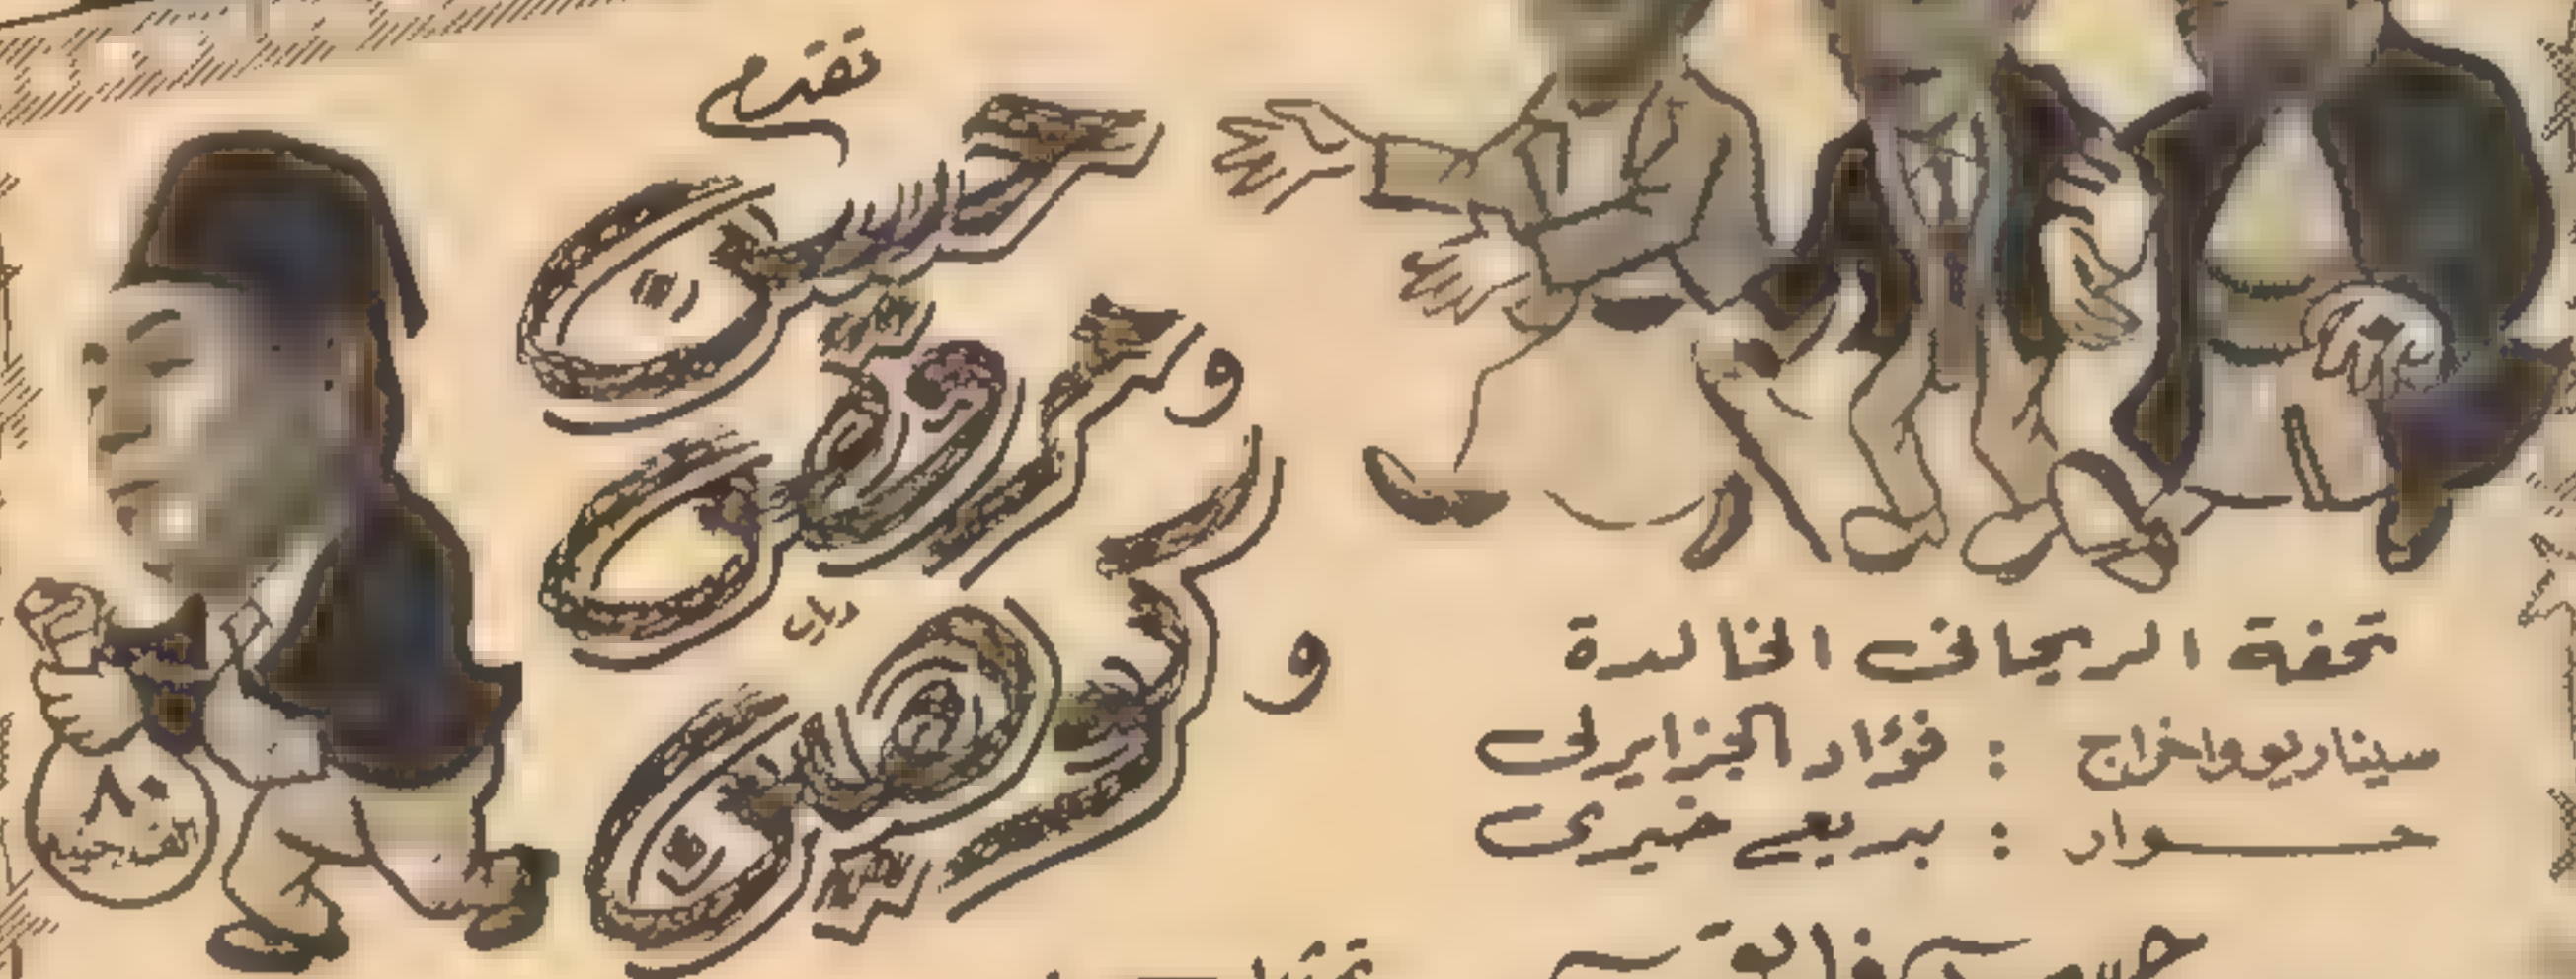 تقدم
حسن
و مرقص
و كوهين
٨٠
الف جنيه
تحفة الريحانى الخالدة
سيناريو واخراج : فؤاد الجزايرلى
حـــوار : بديع خيرى
حسن فايق